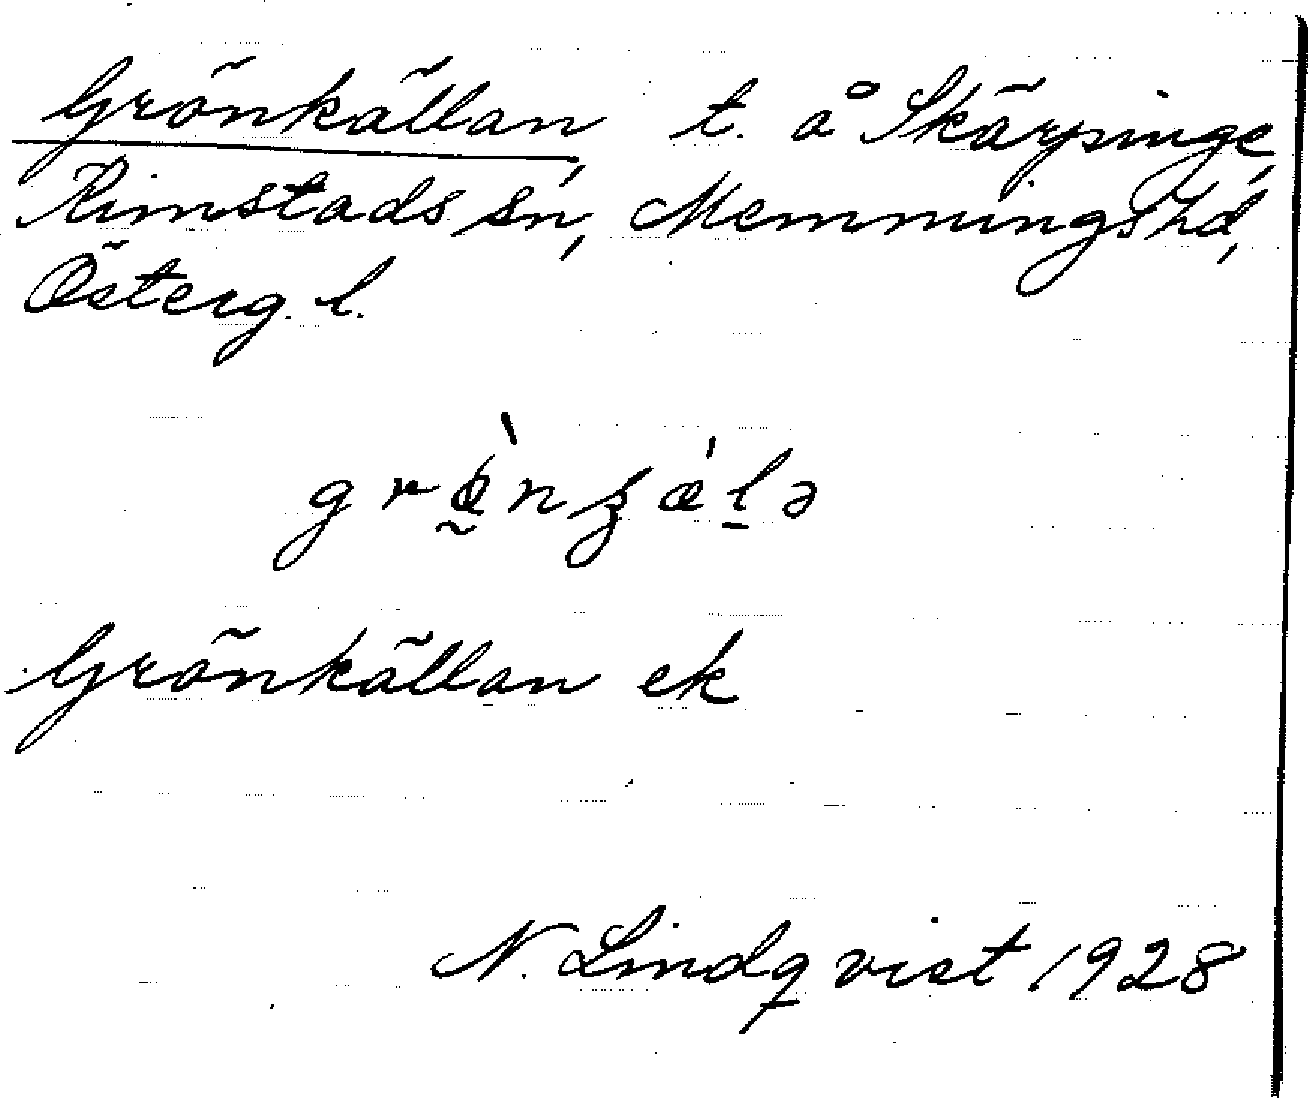 Grönkällan, t. å Skärpinge,
Rimstads sn, Memmingshd,
Österg. l.
Grönkällan ek
N. Lindqvist 1928